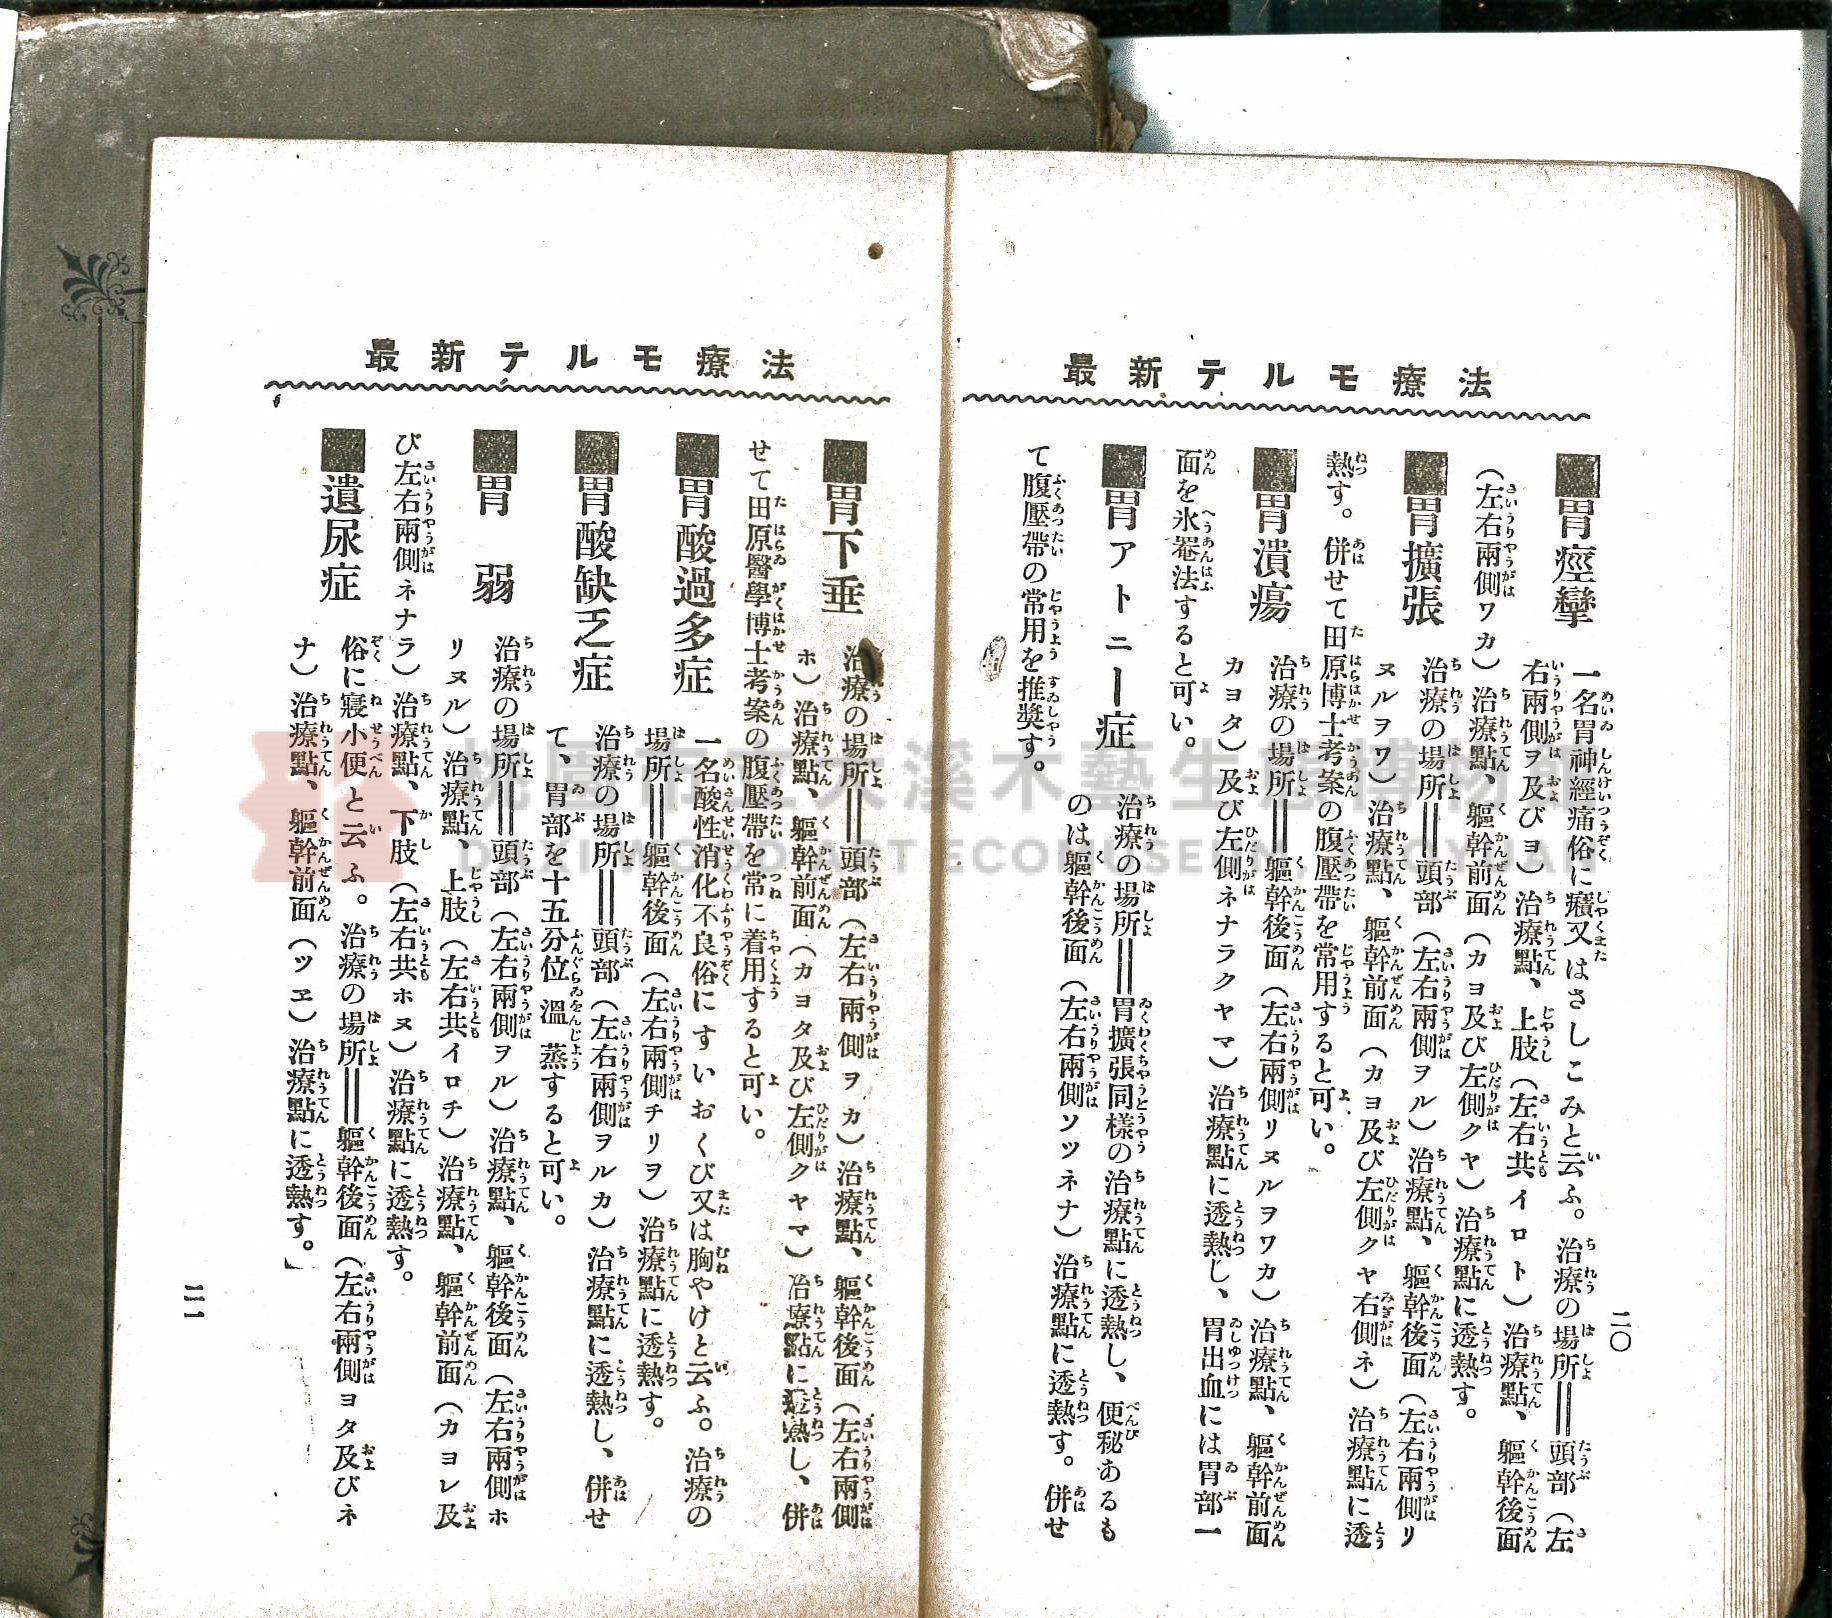 最新テルモ療法
二〇
■胃痙攣 一名胃神經痛俗に癪又はさしこみと云ふ。治療の場所‖頭部（左
右兩側ヲ及びヨ）治療點、上肢（左右共イロト）治療點、軀幹後面
（左右兩側ワカ）治療點、軀幹前面（カヨ及び左側クヤ）治療點に透熱す。
■胃擴張 治療の場所‖頭部（左右兩側ヲル）治療點、軀幹後面（左右兩側リ
ヌルヲワ）治療點、軀幹前面（カヨ及び左側クヤ右側ネ）治療點に透
熱す。併せて田原博士考案の腹壓帶を常用すると可い。
■胃潰瘍 治療の場所‖軀幹後面（左右兩側リヌルヲワカ）治療點、軀幹前面
カヨタ）及び左側ネナラクヤマ）治療點に透熱し、胃出血には胃部一
面を氷罨法すると可い。
■胃アトニー症 治療の場所‖胃擴張同樣の治療點に透熱し、便秘あるも
のは軀幹後面（左右兩側ソツネナ）治療點に透熱す。併せ
て腹壓帶の常用を推奬す。
最新テルモ療法
■胃下垂 治療の場所‖頭部（左右兩側ヲカ）治療點、軀幹後面（左右兩側
ホ）治療點、軀幹前面（カヨタ及び左側クヤマ）治療點に透熱し、併
せて田原醫學博士考案の腹壓帶を常に着用すると可い。
■胃酸過多症 一名酸性消化不良俗にすいおくび又は胸やけと云ふ。治療の
場所‖軀幹後面（左右兩側チリヲ）治療點に透熱す。
■胃酸缺乏症 治療の場所‖頭部（左右兩側ヲルカ）治療點に透熱し、併せ
て、胃部を十五分位溫蒸すると可い。
■胃弱 治療の場所‖頭部（左右兩側ヲル）治療點、軀幹後面（左右兩側ホ
リヌル）治療點、上肢（左右共イロチ）治療點、軀幹前面（カヨレ及
び左右兩側ネナラ）治療點、下肢（左右共ホヌ）治療點に透熱す。
■遺尿症 俗に寢小便と云ふ。治療の場所‖軀幹後面（左右兩側ヨタ及びネ
ナ）治療點、軀幹前面（ツヱ）治療點に透熱す。」
二一
桃園市立大溪木藝生態博物館
DAXI WOOD ART ECOMUSEUM, TAOYUAN